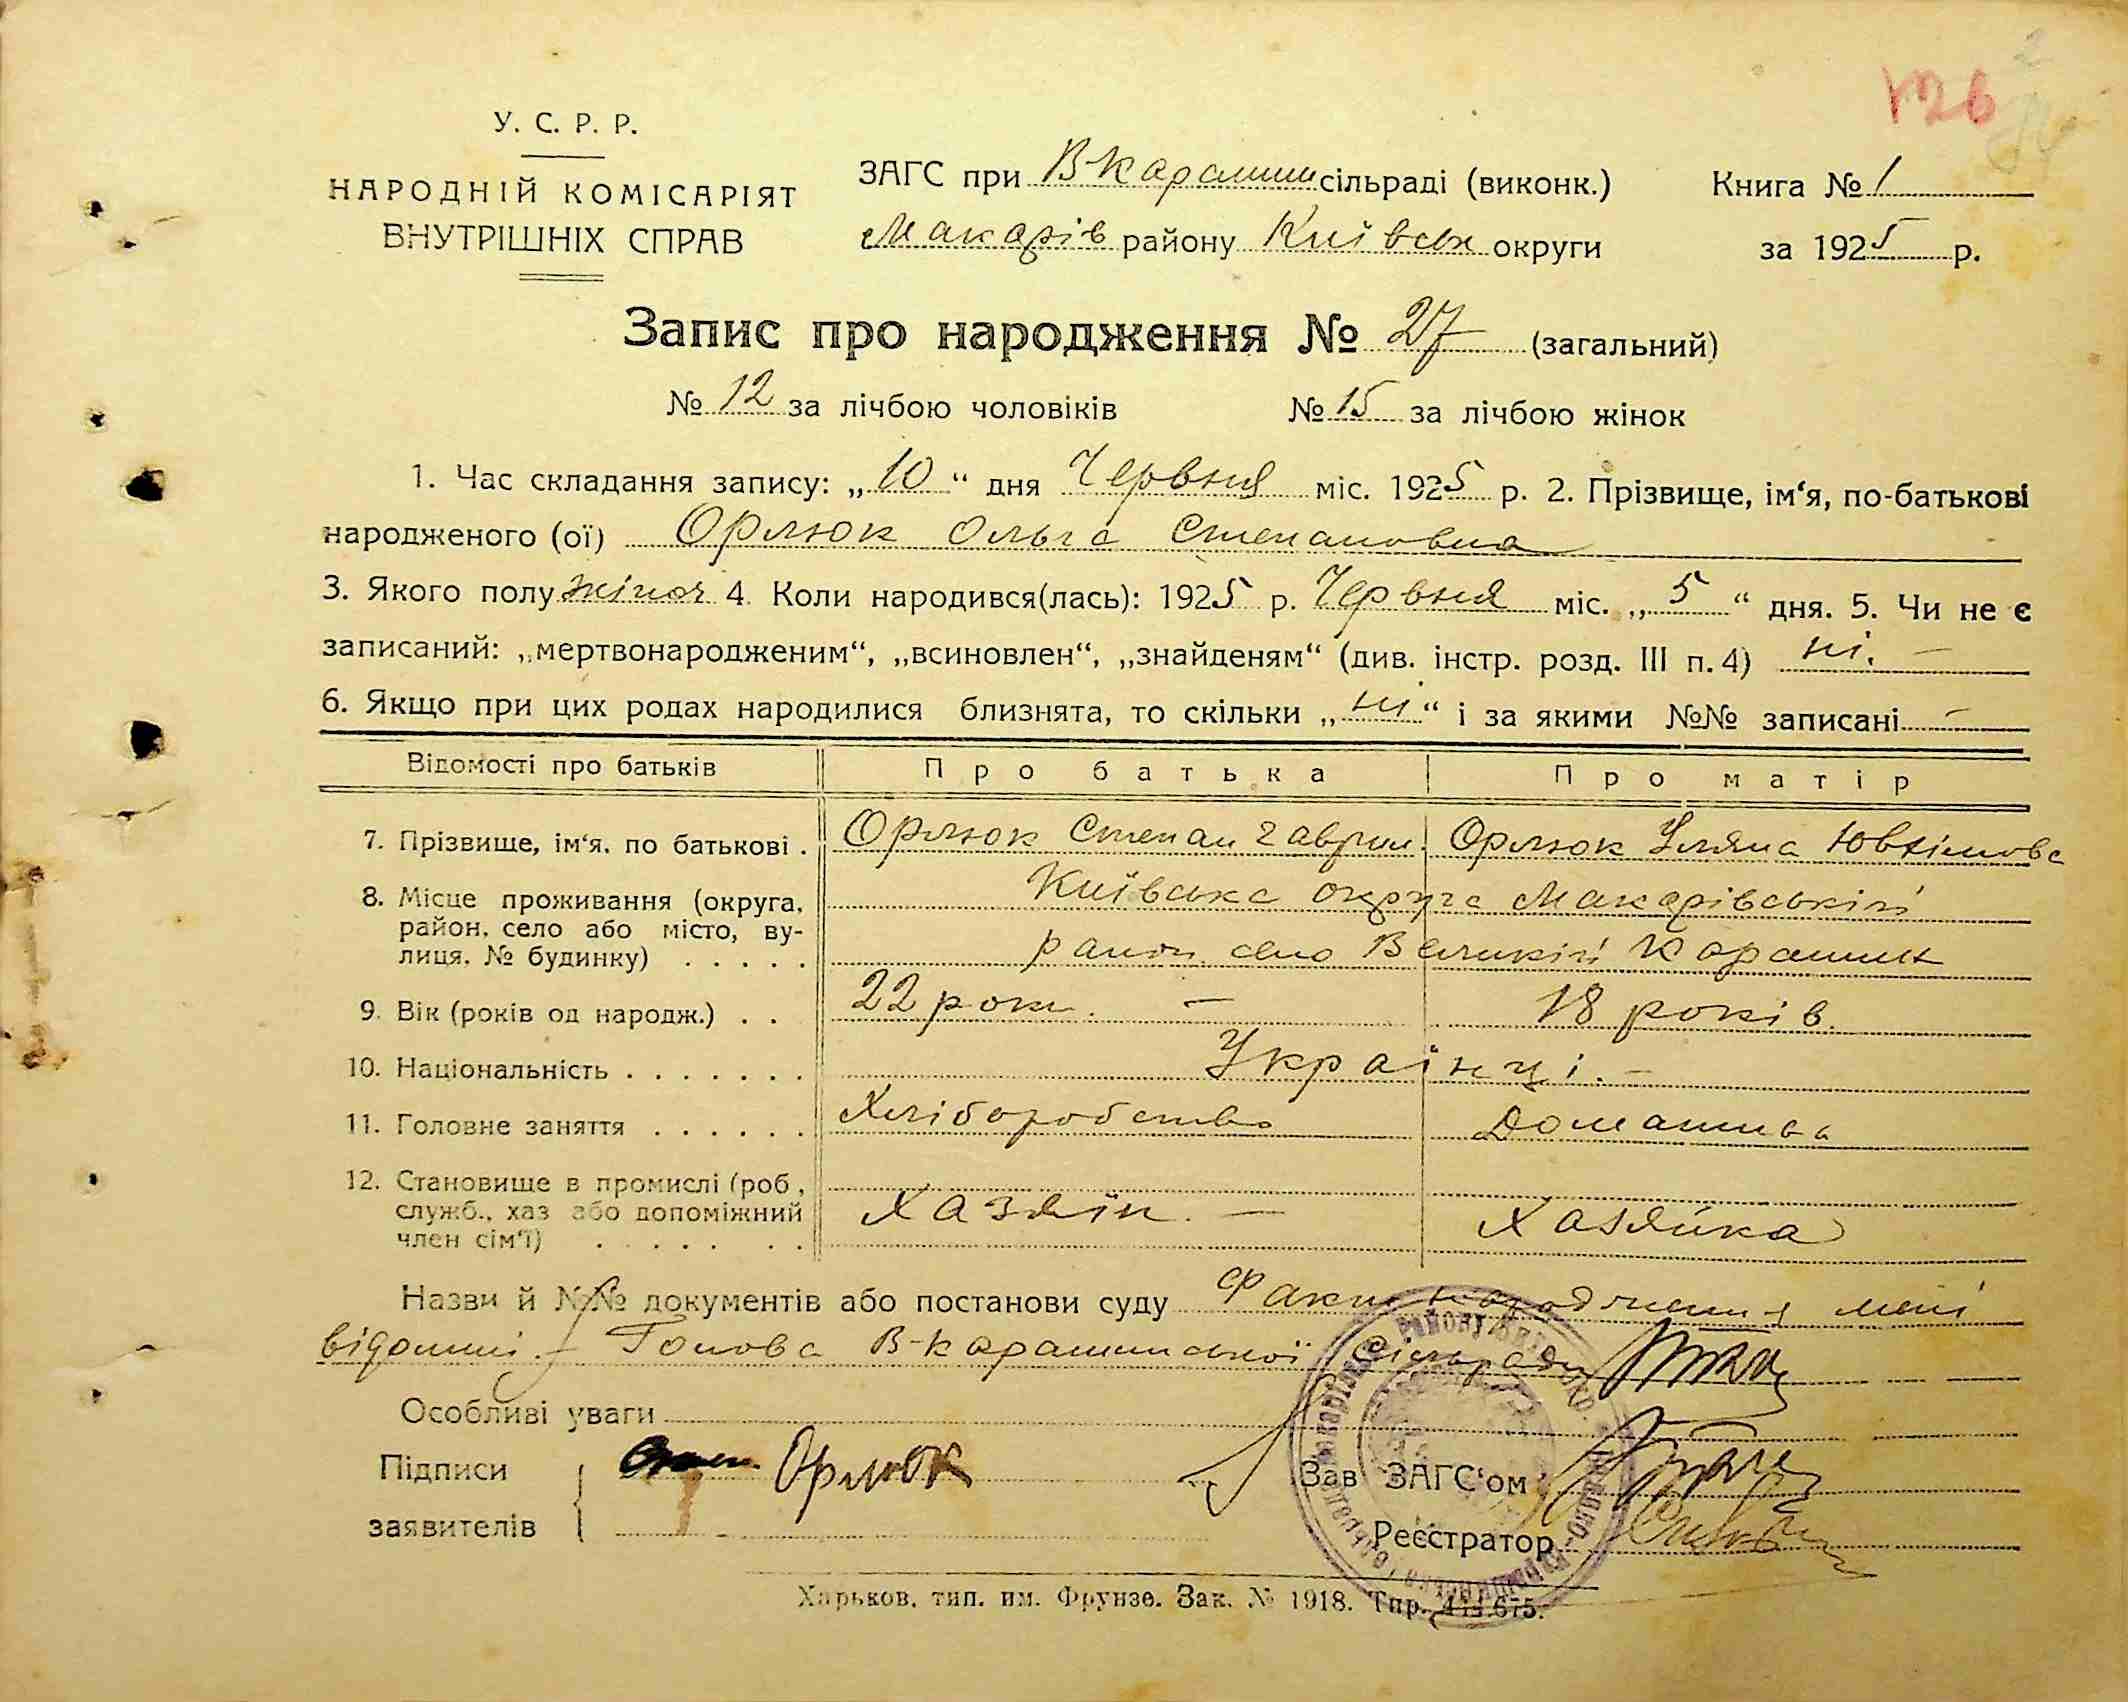 126
2
У. С. Р. Р.
НАРОДНІЙ КОМІСАРІЯТ
ВНУТРІШНІХ СПРАВ
ЗАГС при В-Карашин сільраді (виконк.)
Макарів району Київськ округи
Книга № 1
за 1925 р.
Запис про народження № 27 (загальний)
№ 12 за лічбою чоловіків № 15 за лічбою жінок
1. Час складання запису: „10“ дня Червня міс. 1925 р. 2. Прізвище, ім‘я, по-батькові
народженого (ої) Орлюк Ольга Степановна
3. Якого полу жіноч 4. Коли народився(лась): 1925 р. Червня міс. „5“ дня. 5. Чи не є
записаний: „мертвонародженим“, „всиновлен“, „знайденям“ (див. інстр. розд. III п. 4) ні. —
6. Якщо при цих родах народилися близнята, то скільки „ні“ і за якими №№ записані —
Відомості про батьків Про батька Про матір
7. Прізвище, ім‘я, по батькові . Орлюк Степан Гаврил. Орлюк Уляна Ювхімова
8. Місце проживання (округа, Київська округа Макарівський
район, село або місто, ву-
лиця, № будинку) . . . . . район село Великій Карашин
9. Вік (років од народж.) . . 22 роки. — 18 років.
10. Національність . . . . . . . Українці. —
11. Головне заняття . . . . . . Хліборобство Домашня
12. Становище в промислі (роб.,
служб., хаз або допоміжний Хазяїн. — Хазяйка
член сім‘ї) . . . . . . .
Назви й №№ документів або постанови суду Факт народження мені
відомий. Голова В-Карашинської Сільради
Особливі уваги
Підписи Степ. Орлюк Зав ЗАГС‘ом
заявителів Реєстратор
Харьков. тип. им. Фрунзе. Зак. № 1918. Тир.